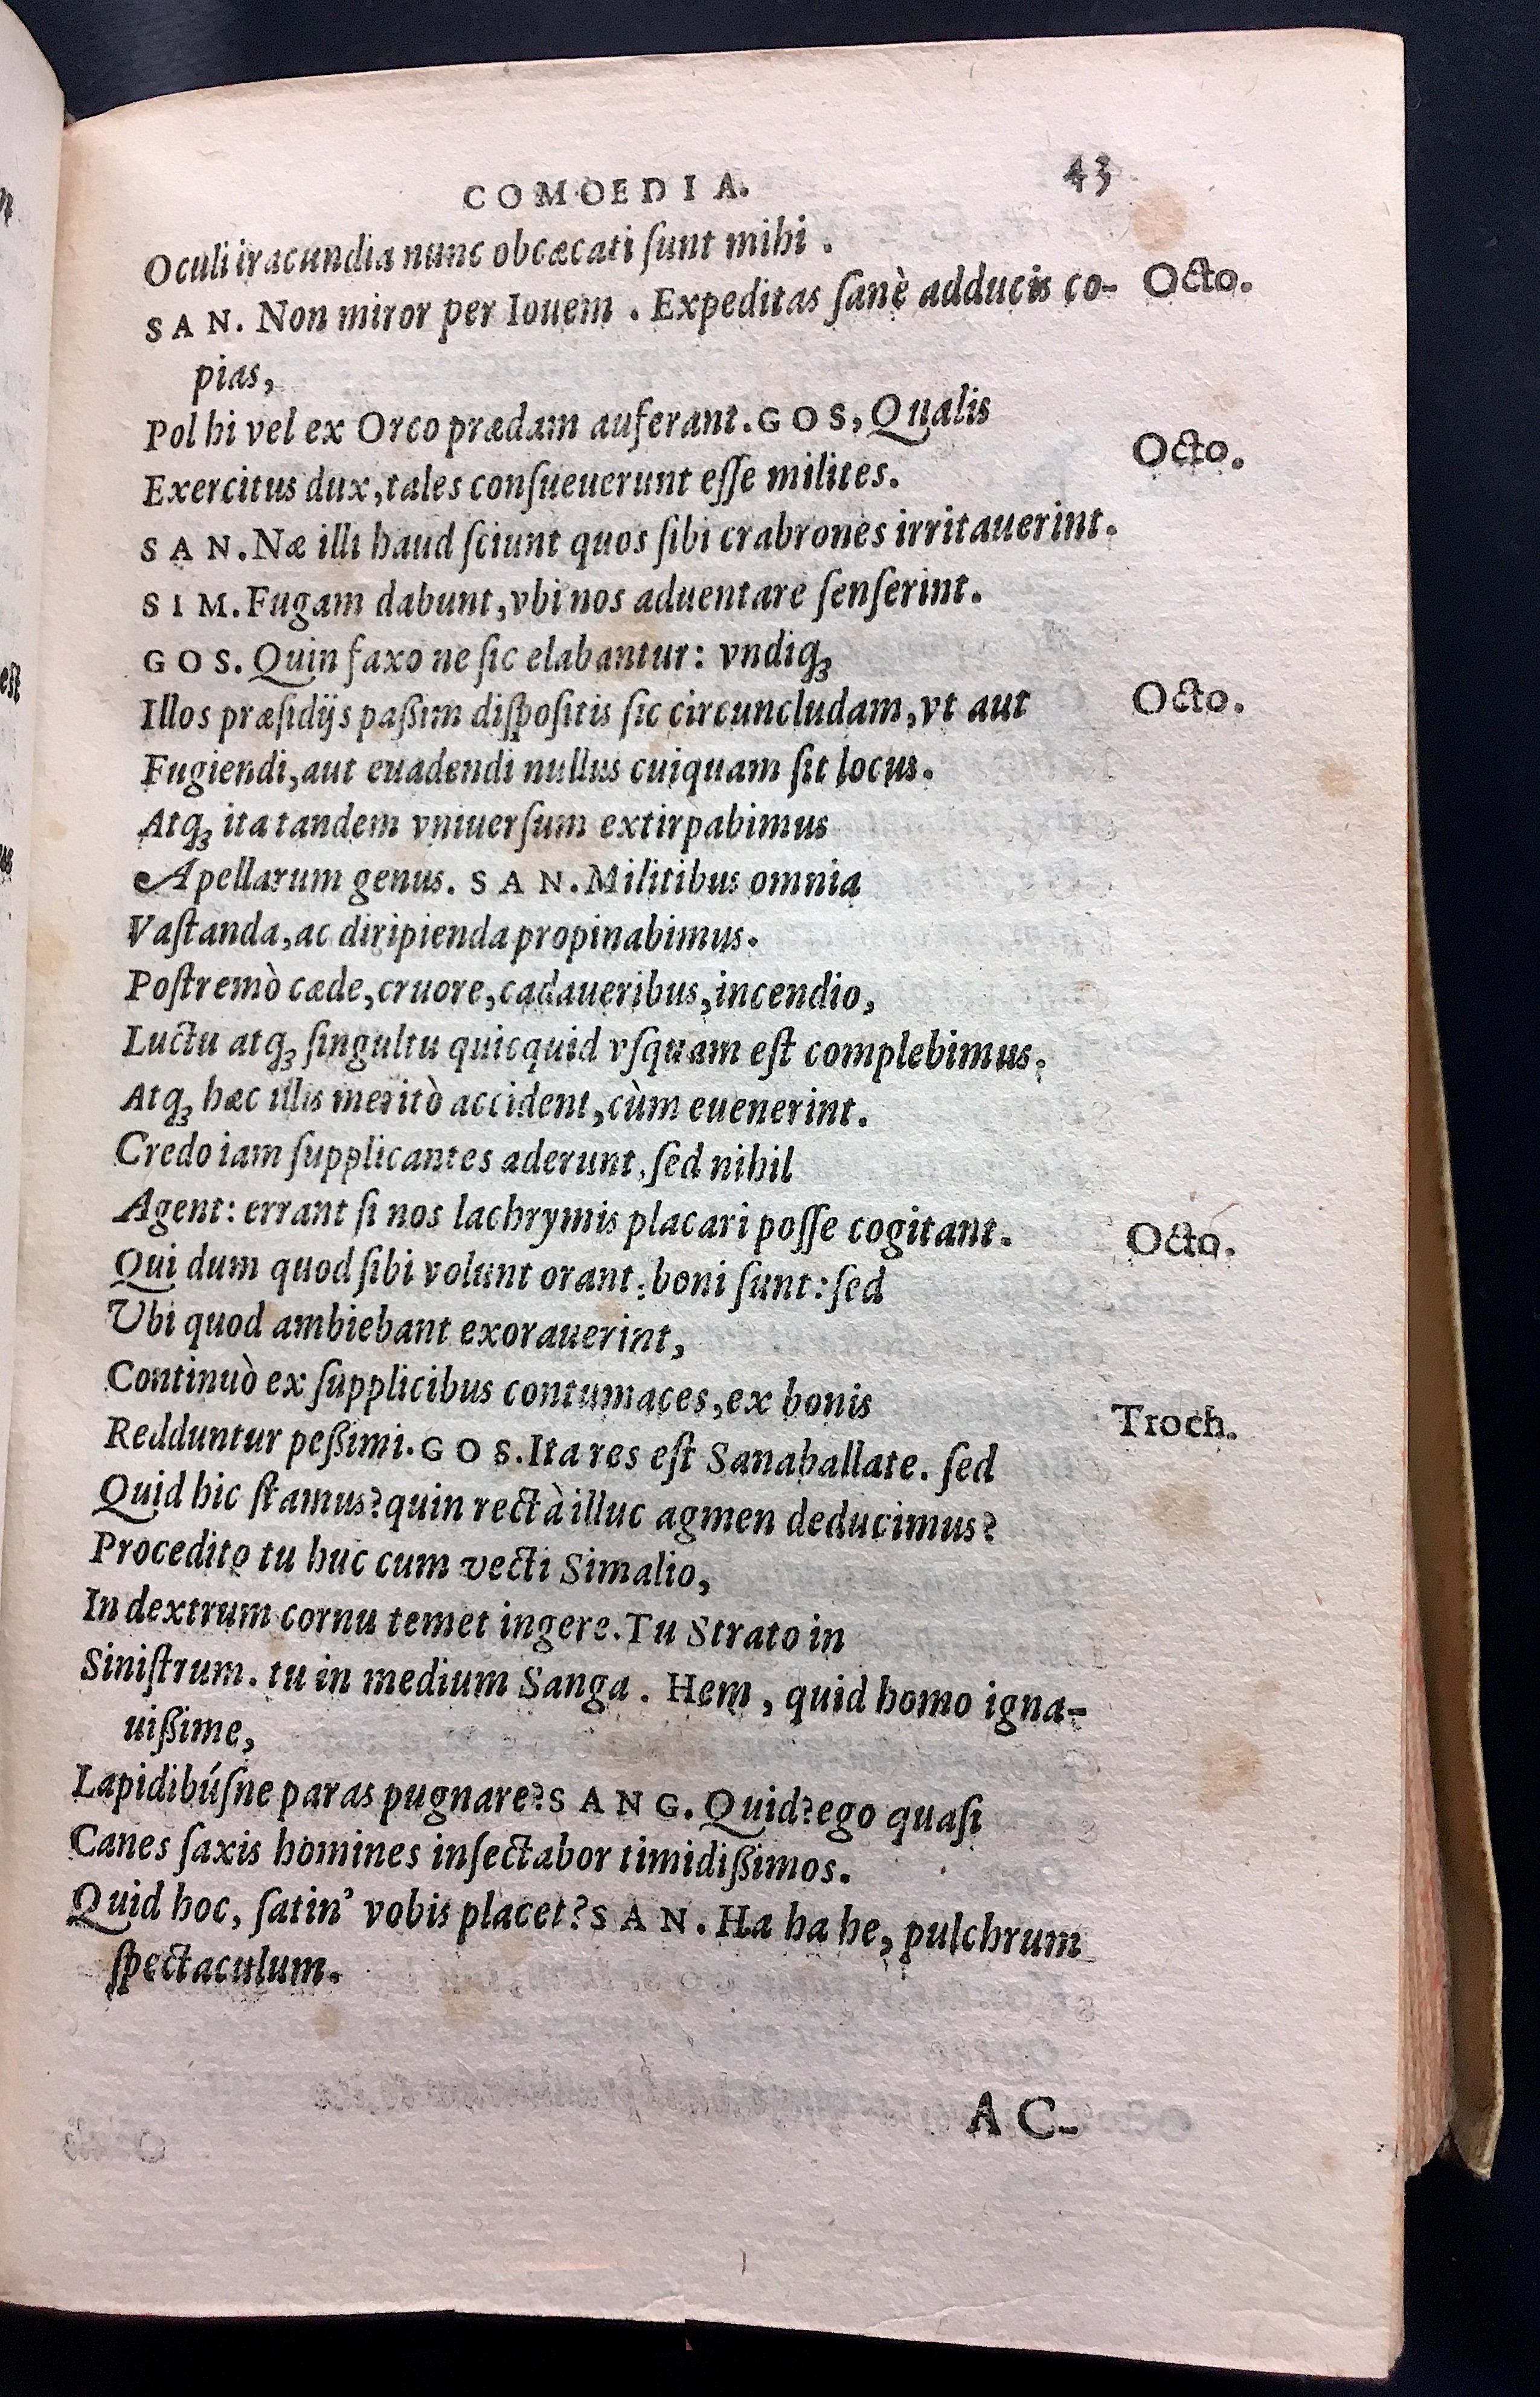 COMOEDIA. 43
Oculi iracundia nunc obcæcati ſunt mihi .
SAN. Non miror per Iouem . Expeditas ſanè adducis co- Octo.
pias,
Pol hi vel ex Orco prædam auferant. GOS, Qualis
Octo.
Exercitus dux, tales conſueuerunt eſſe milites.
SAN. Næ illi haud ſciunt quos ſibi crabrones irritauerint.
SIM. Fugam dabunt, vbi nos aduentare ſenſerint.
GOS. Quin faxo ne ſic elabantur: vndiqꝫ
Illos præſidijs paßim diſpoſitis ſic circuncludam, vt aut Octo.
Fugiendi, aut euadendi nullus cuiquam ſit locus.
Atqꝫ ita tandem vniuerſum extirpabimus
Apellarum genus. SAN. Militibus omnia
Vaſtanda, ac diripienda propinabimus.
Poſtremò cæde, cruore, cadaueribus, incendio,
Luctu atqꝫ ſingultu quicquid vſquam eſt complebimus.
Atqꝫ hæc illis meritò accident, cùm euenerint.
Credo iam ſupplicantes aderunt, ſed nihil
Agent: errant ſi nos lachrymis placari poſſe cogitant. Octo.
Qui dum quod ſibi volunt orant, boni ſunt: ſed
Vbi quod ambiebant exorauerint,
Continuò ex ſupplicibus contumaces, ex bonis
Redduntur peßimi. GOS. Ita res eſt Sanaballate. ſed Troch.
Quid hic ſtamus? quin rectà illuc agmen deducimus?
Procedito tu huc cum vecti Simalio,
In dextrum cornu temet ingere. Tu Strato in
Siniſtrum. tu in medium Sanga . Hem , quid homo igna-
uißime,
Lapidibúſne paras pugnare? SANG. Quid? ego quaſi
Canes ſaxis homines inſectabor timidißimos.
Quid hoc, ſatin’ vobis placet? SAN. Ha ha he, pulchrum
ſpectaculum.
AC-